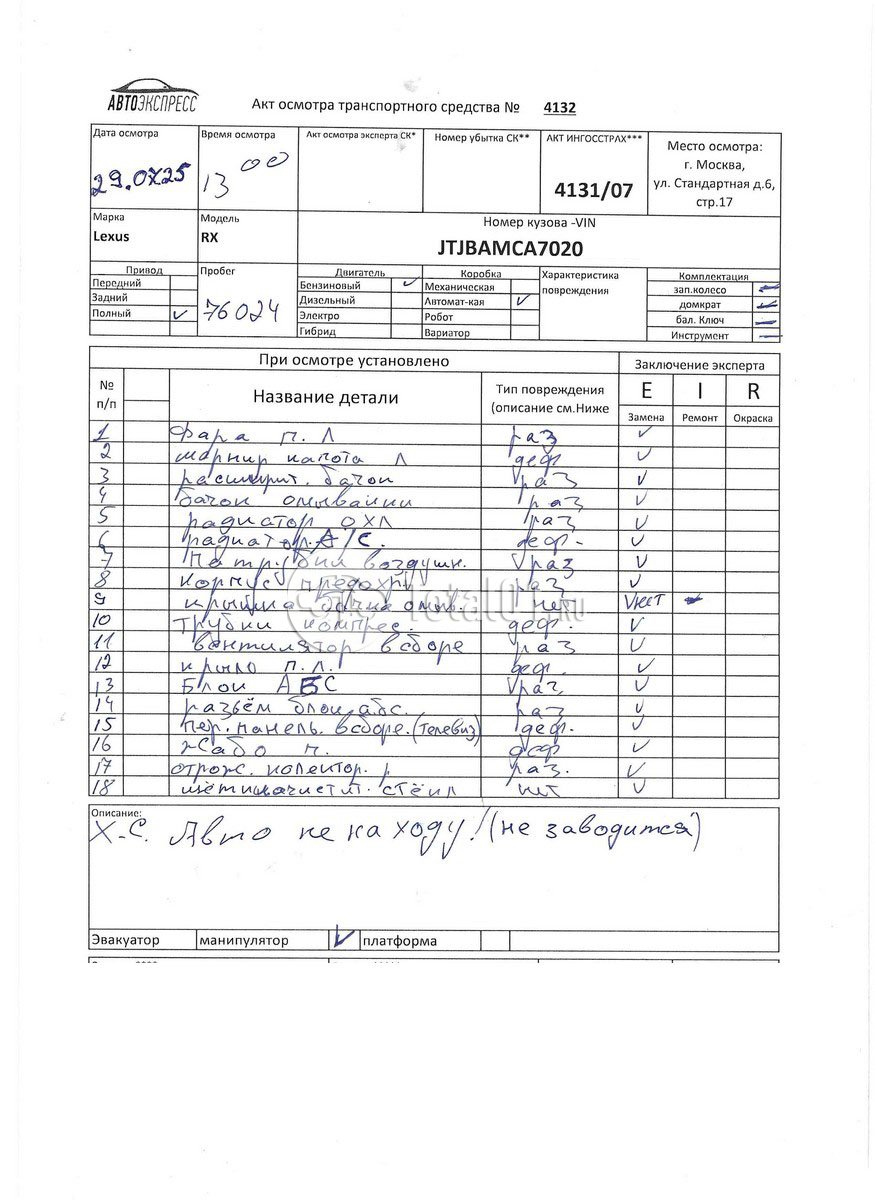 АВТОЭКСПРЕСС
Акт осмотра транспортного средства № 4132
Дата осмотра Время осмотра Акт осмотра эксперта СК* Номер убытка СК** АКТ ИНГОССТРАХ*** Место осмотра:
г. Москва,
ул. Стандартная д.6,
стр.17
29.0725 13 00 4131/07
Марка Модель Номер кузова -VIN
Lexus RX JTJBAMCA7020
Привод Пробег Двигатель Коробка Характеристика повреждения Комплектация
Передний Бензиновый Механическая зап.колесо
Задний 76024 Дизельный Автомат-кая домкрат
Полный Электро Робот бал. Ключ
Гибрид Вариатор Инструмент
При осмотре установлено Заключение эксперта
№ п/п Название детали Тип повреждения (описание см.Ниже E I R
Замена Ремонт Окраска
1 Фара п. Л раз
2 шарнир капота Л деф
3 расширит. бачок раз
4 бачок омывайки раз
5 радиатор охл раз
6 радиатор. A/C. деф-
7 Патрубки воздушн. раз
8 корпус предохр раз
9 крышка бачка омыв. нет нет
10 трубки компрес. деф.
11 вентилятор в сборе раз
12 крыло п.л. деф.
13 Блок АБС раз
14 разъём блок абс. раз
15 пер. панель. в сборе. (телевиз) деф.
16 жабо п. деф
17 отрож. колектор. р раз.
18 щётки очист. стёкл нет
Total01.RU
Описание:
Х-С. Авто не на ходу! (не заводится)
Эвакуатор манипулятор платформа